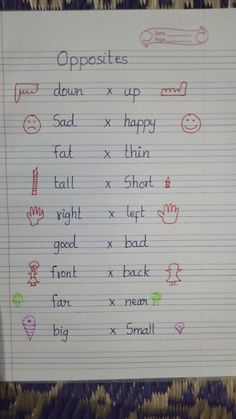 Opposites
down x up
Sad x happy
fat x thin
tall x Short
right x left
good x bad
front x back
far x near
big x Small